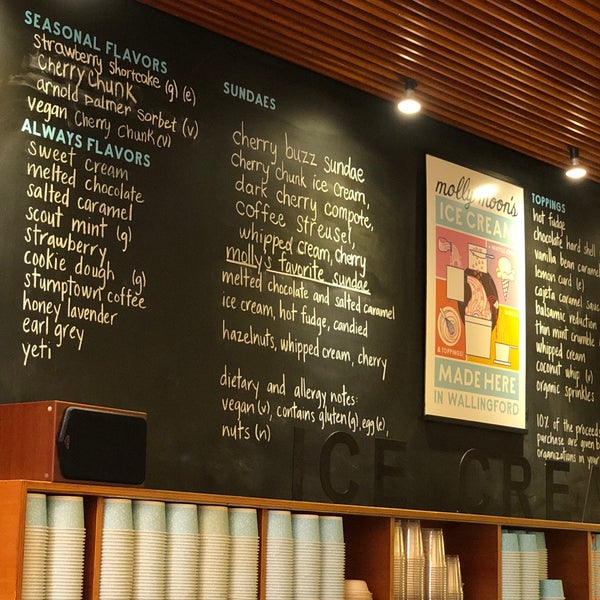 SEASONAL FLAVORS
strawberry shortcake (g) (e)
cherry chunk
arnold palmer sorbet (v)
vegan cherry chunk (v)
ALWAYS FLAVORS
sweet cream
melted chocolate
salted caramel
scout mint (g)
strawberry
cookie dough (g)
stumptown coffee
honey lavender
earl grey
yeti
SUNDAES
cherry buzz sundae
cherry chunk ice cream,
dark cherry compote,
coffee streusel,
whipped cream, cherry
molly's favorite sundae
melted chocolate and salted caramel
ice cream, hot fudge, candied
hazelnuts, whipped cream, cherry
dietary and allergy notes:
vegan (v), contains gluten (g), egg (e),
nuts (n)
molly moon's
ICE CREAM
& TOPPINGS!
MADE HERE
IN WALLINGFORD
TOPPINGS
hot fudge
chocolate hard shell
vanilla bean caramel
lemon curd (e)
cajeta caramel sauce
balsamic reduction
thin mint crumble
whipped cream
coconut whip (v)
organic sprinkles
10% of the proceeds
purchase are given
organizations in your
ICE CREA